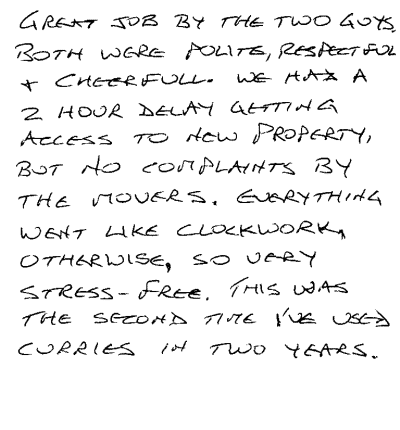 GREAT JOB BY THE TWO GUYS.
BOTH WERE POLITE, RESPECTFUL
+ CHEERFULL. WE HAD A
2 HOUR DELAY GETTING
ACCESS TO NEW PROPERTY,
BUT NO COMPLAINTS BY
THE MOVERS. EVERYTHING
WENT LIKE CLOCKWORK,
OTHERWISE, SO VERY
STRESS-FREE. THIS WAS
THE SECOND TIME I'VE USED
CURRIES IN TWO YEARS.